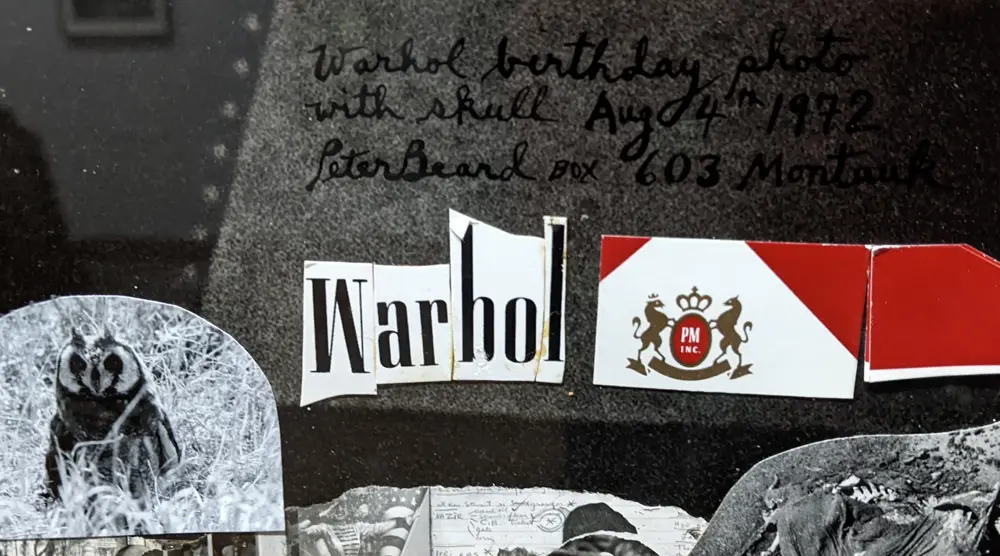 Warhol birthday photo
with skull Aug 4th 1972
Peter Beard BOX 603 Montauk
Warhol
PM
INC.